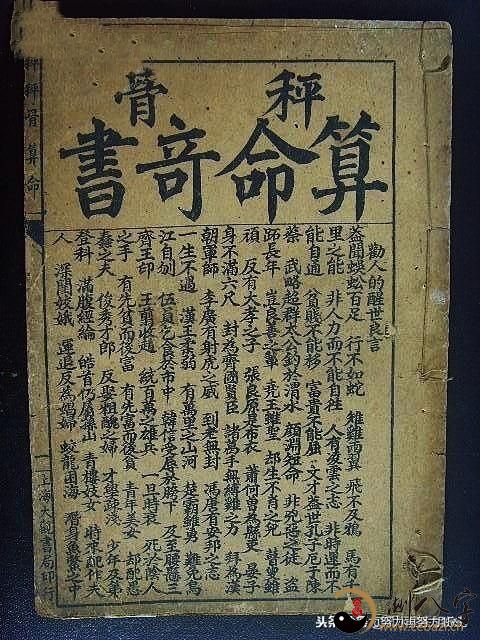 秤骨
算命奇書
勸人的醒世良言
益聞蜈蚣百足 行不如蛇 雄雞兩翼 飛不及鴉 馬有千
里之能 非人力而不能自往 人有凌雲之志 非時運而不
能自通 貧賤不能移 富貴不能屈 文才盖世孔子厄于陳
蔡 武略超群太公釣於渭水 顏淵短命 非兇惡之徒 盜
跖長年 豈良善之輩 堯王雖聖 却生不肖之兒 瞽叟雖
頑 反有大孝之子 張良原是布衣 蕭何曾為縣吏 晏子
身不滿六尺 封為齊國賢臣 諸葛手無縛雞之力 拜為漢
朝軍師 李廣有射虎之威 到老無封 馮唐有安邦之志
一生不遇 漢王柔弱 有萬里之山河 楚霸雖勇 難免烏
江自刎 伍員乞食於市中 韓信受辱於胯下 及至腰懸三
齊王印 王翦收趙 統百萬之雄兵 一旦時衰 死於陰人
之手 有先貧而後富 有先富而後貧 青年美女 却配愚
蠢之夫 俊秀才郎 反娶粗醜之婦 才學疎淺 少年及第
登科 滿腹經綸 皓首仍居深山 青樓妓女 時來配作夫
人 深閨姣娥 運退反為娼婦 蛟龍困海 潛身魚鱉之中
上海大觀書局印行
秤骨算命